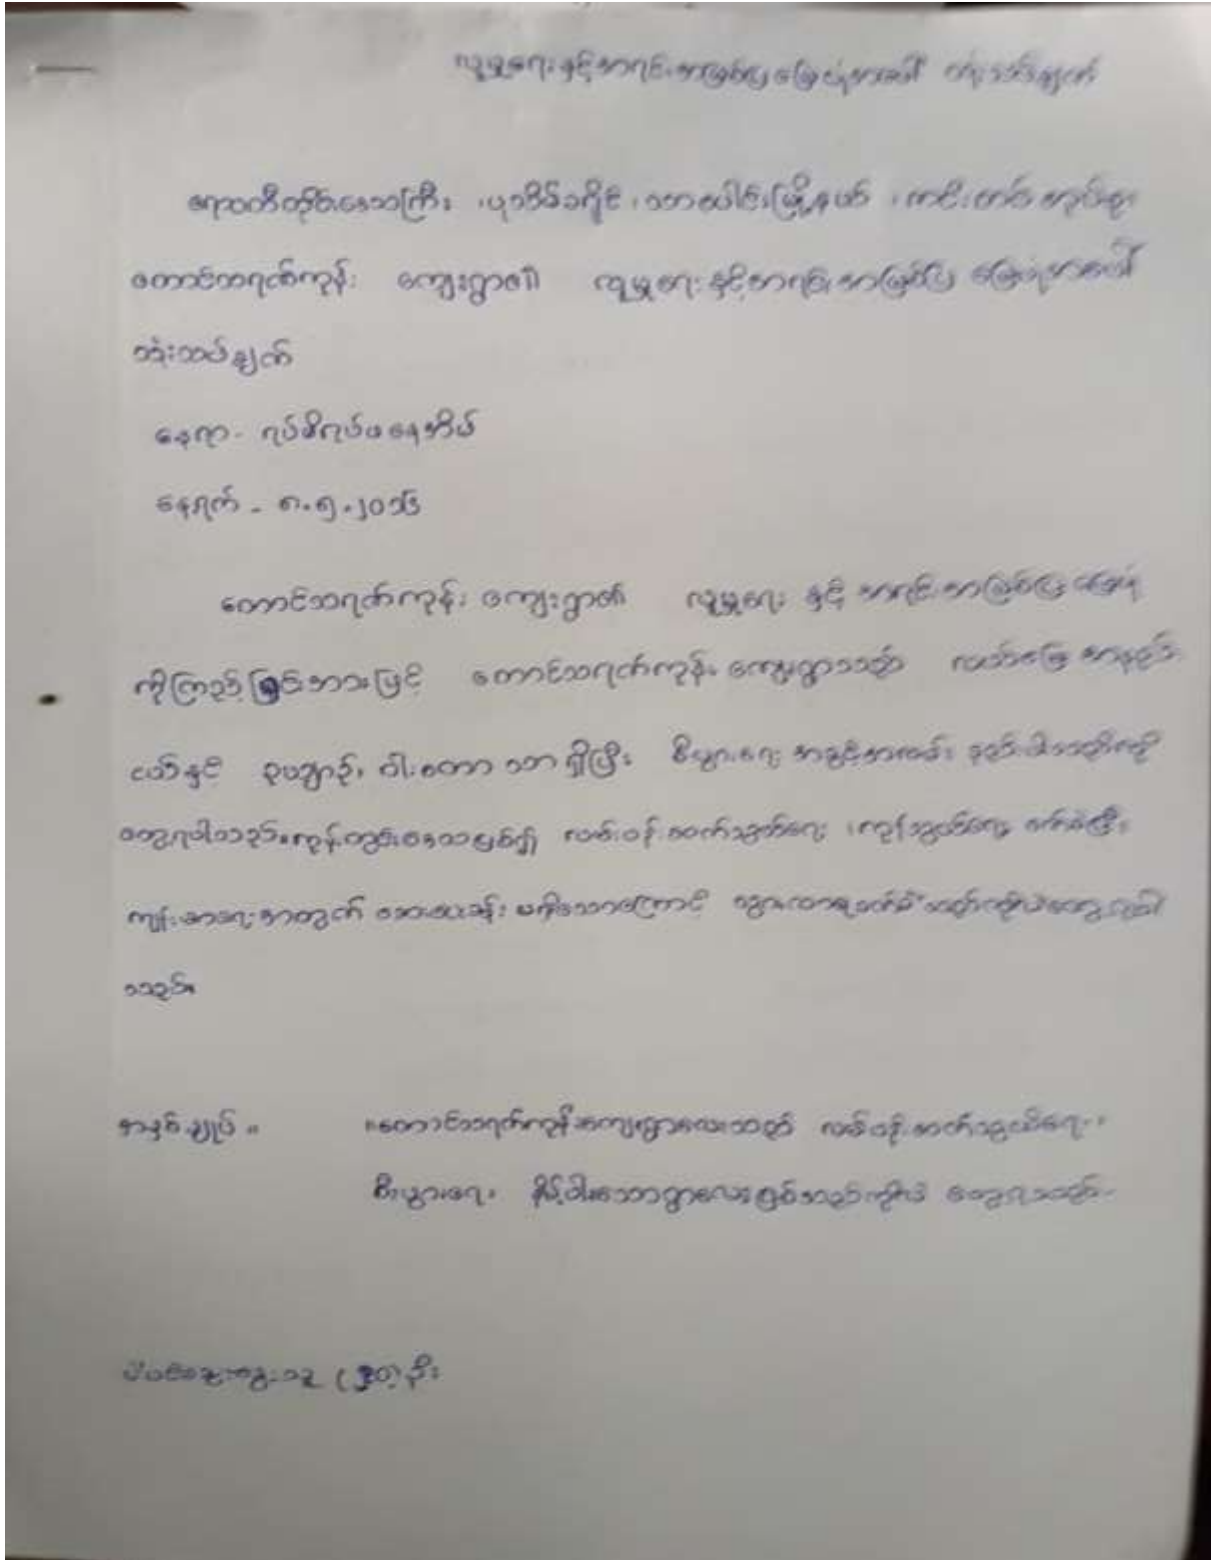 လူမှုရေးနှင့်အရင်းအမြစ်ပြမြေပုံအပေါ် သုံးသပ်ချက်
ဧရာဝတီတိုင်းဒေသကြီး၊ ပုသိမ်ခရိုင်၊ သာပေါင်းမြို့နယ်၊ အုပ်စု၊
တောင်သရက်ကုန်း ကျေးရွာ၏ လူမှုရေးနှင့်အရင်းအမြစ်ပြ မြေပုံအပေါ်
သုံးသပ်ချက်
နေရာ - ရပ်မိရပ်ဖနေအိမ်
နေ့ရက် - ၈.၅.၂၀၁၆
တောင်သရက်ကုန်း ကျေးရွာ၏ လူမှုရေး နှင့် အရင်းအမြစ်ပြမြေပုံ
ကိုကြည့်ခြင်းအားဖြင့် တောင်သရက်ကုန်း ကျေးရွာသည် လယ်မြေ အနည်း
ငယ်နှင့် ဝါးတော သာ ရှိပြီး စီးပွားရေး အခွင့်အလမ်း နည်းပါးသည်ကို
တွေ့ရပါသည်။ကုန်းတွင်းဒေသဖြစ်၍ လမ်းပန်းဆက်သွယ်ရေး ၊ကုန်သွယ်ရေး ခက်ခဲပြီး
ကျန်းမာရေးအတွက် ဆေးပေးခန်း မရှိသောကြောင့် သွားလာရခက်ခဲသည်ကိုလဲတွေ့ရပါ
သည်။
အနှစ်ချုပ် ။ ။တောင်သရက်ကုန်းကျေးရွာလေးသည် လမ်းပန်းဆက်သွယ်ရေး၊
စီးပွားရေး နိမ့်ပါးသောရွာလေးဖြစ်သည်ကိုလဲ တွေ့ရသည်။
ပါဝင်ဆွေးနွေးသူ ဦး